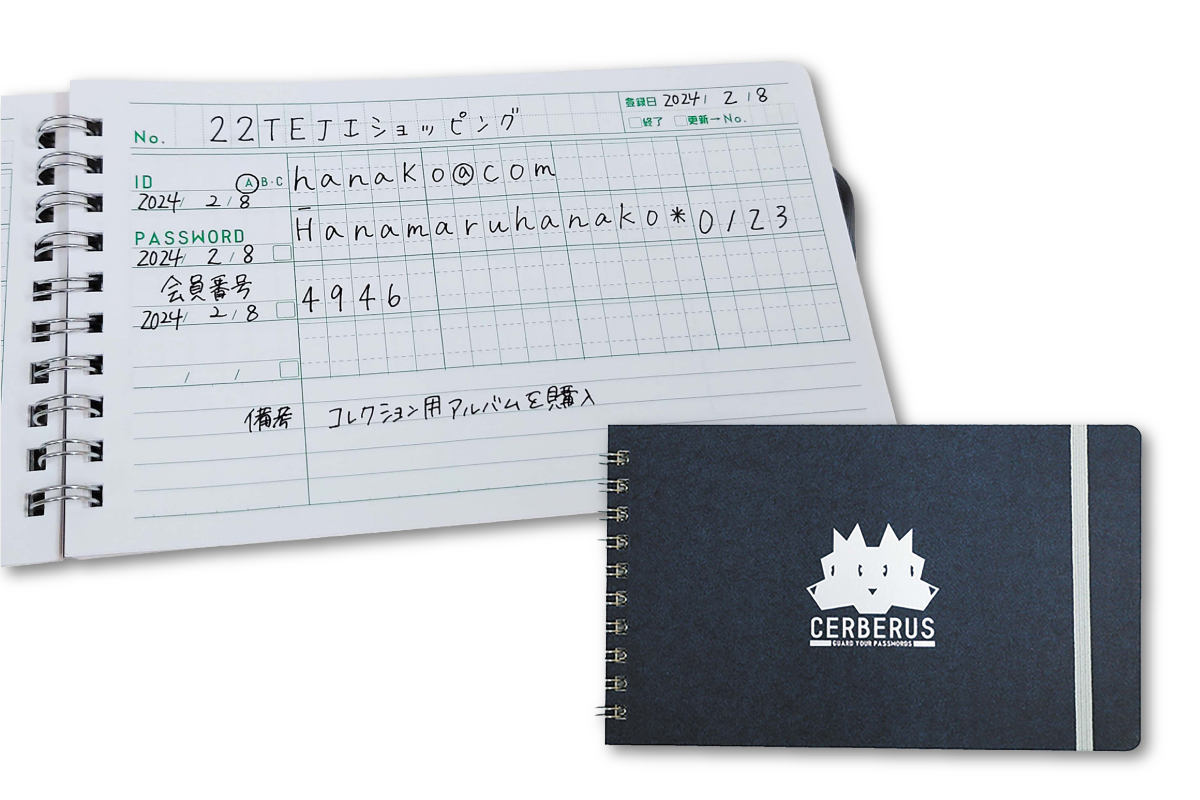 No. 22 TEJIショッピング 登録日 2024/ 2 / 8
終了 更新→No.
ID A B・C hanako@com
2024/ 2 / 8
PASSWORD Hanamaruhanako*0123
2024/ 2 / 8
会員番号 4946
2024/ 2 / 8
/ /
備考 コレクション用アルバムを購入
CERBERUS
GUARD YOUR PASSWORDS